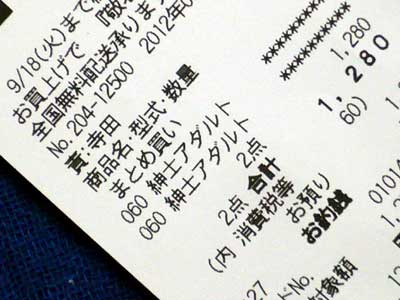 9/18(火)まで
『敬
お買上げで
全国無料配送承りま
No. 204-12500 2012年0
責:寺田
商品名・型式・数量
まとめ買い
060 紳士アダルト
060 紳士アダルト
2点
2点 合計
(内 消費税等
お預り
お釣銭
**********
1,280
**********
1,280
60)
01014
27
ドNo.
対象額